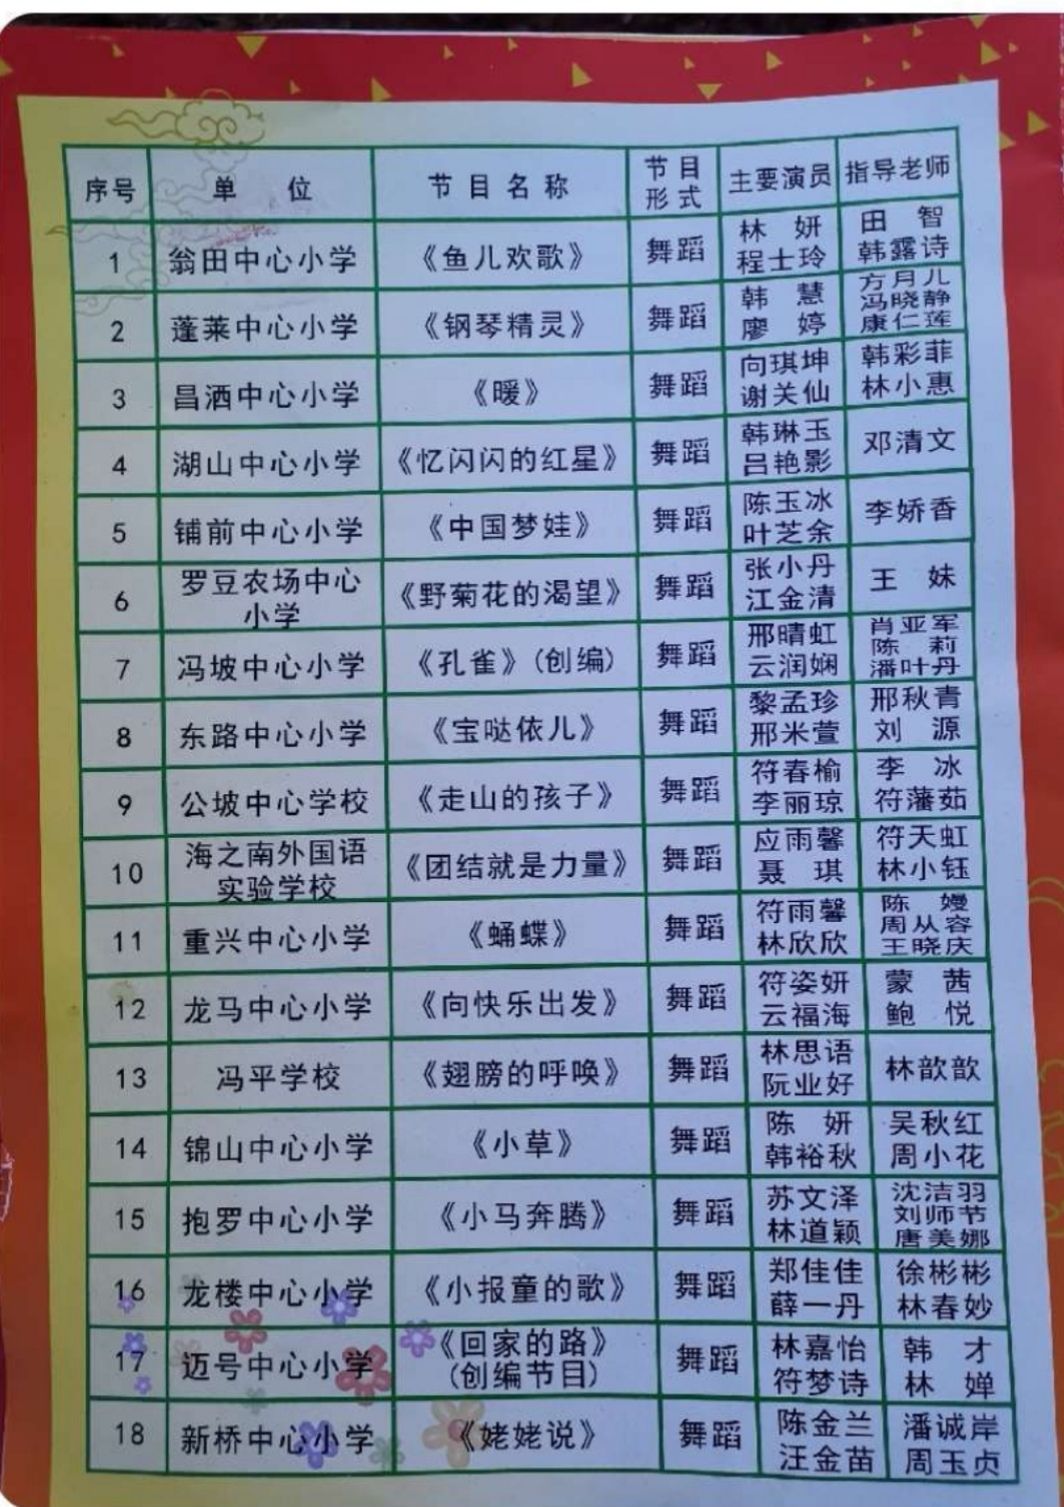 序号 单位 节目名称 节目形式 主要演员 指导老师
1 翁田中心小学 《鱼儿欢歌》 舞蹈 林妍 程士玲 田智 韩露诗
2 蓬莱中心小学 《钢琴精灵》 舞蹈 韩慧 廖婷 方月儿 冯晓静 康仁莲
3 昌洒中心小学 《暖》 舞蹈 向琪坤 谢关仙 韩彩菲 林小惠
4 湖山中心小学 《忆闪闪的红星》 舞蹈 韩琳玉 吕艳影 邓清文
5 铺前中心小学 《中国梦娃》 舞蹈 陈玉冰 叶芝余 李娇香
6 罗豆农场中心小学 《野菊花的渴望》 舞蹈 张小丹 江金清 王妹
7 冯坡中心小学 《孔雀》(创编) 舞蹈 邢晴虹 云润娴 肖亚军 陈莉 潘叶丹
8 东路中心小学 《宝哒依儿》 舞蹈 黎孟珍 邢米萱 邢秋青 刘源
9 公坡中心学校 《走山的孩子》 舞蹈 符春榆 李丽琼 李冰 符藩茹
10 海之南外国语实验学校 《团结就是力量》 舞蹈 应雨馨 聂琪 符天虹 林小钰
11 重兴中心小学 《蛹蝶》 舞蹈 符雨馨 林欣欣 陈嫚 周从容 王晓庆
12 龙马中心小学 《向快乐出发》 舞蹈 符姿妍 云福海 蒙茜 鲍悦
13 冯平学校 《翅膀的呼唤》 舞蹈 林思语 阮业好 林歆歆
14 锦山中心小学 《小草》 舞蹈 陈妍 韩裕秋 吴秋红 周小花
15 抱罗中心小学 《小马奔腾》 舞蹈 苏文泽 林道颖 沈洁羽 刘师节 唐美娜
16 龙楼中心小学 《小报童的歌》 舞蹈 郑佳佳 薛一丹 徐彬彬 林春妙
17 迈号中心小学 《回家的路》(创编节目) 舞蹈 林嘉怡 符梦诗 韩才 林婵
18 新桥中心小学 《姥姥说》 舞蹈 陈金兰 汪金苗 潘诚岸 周玉贞